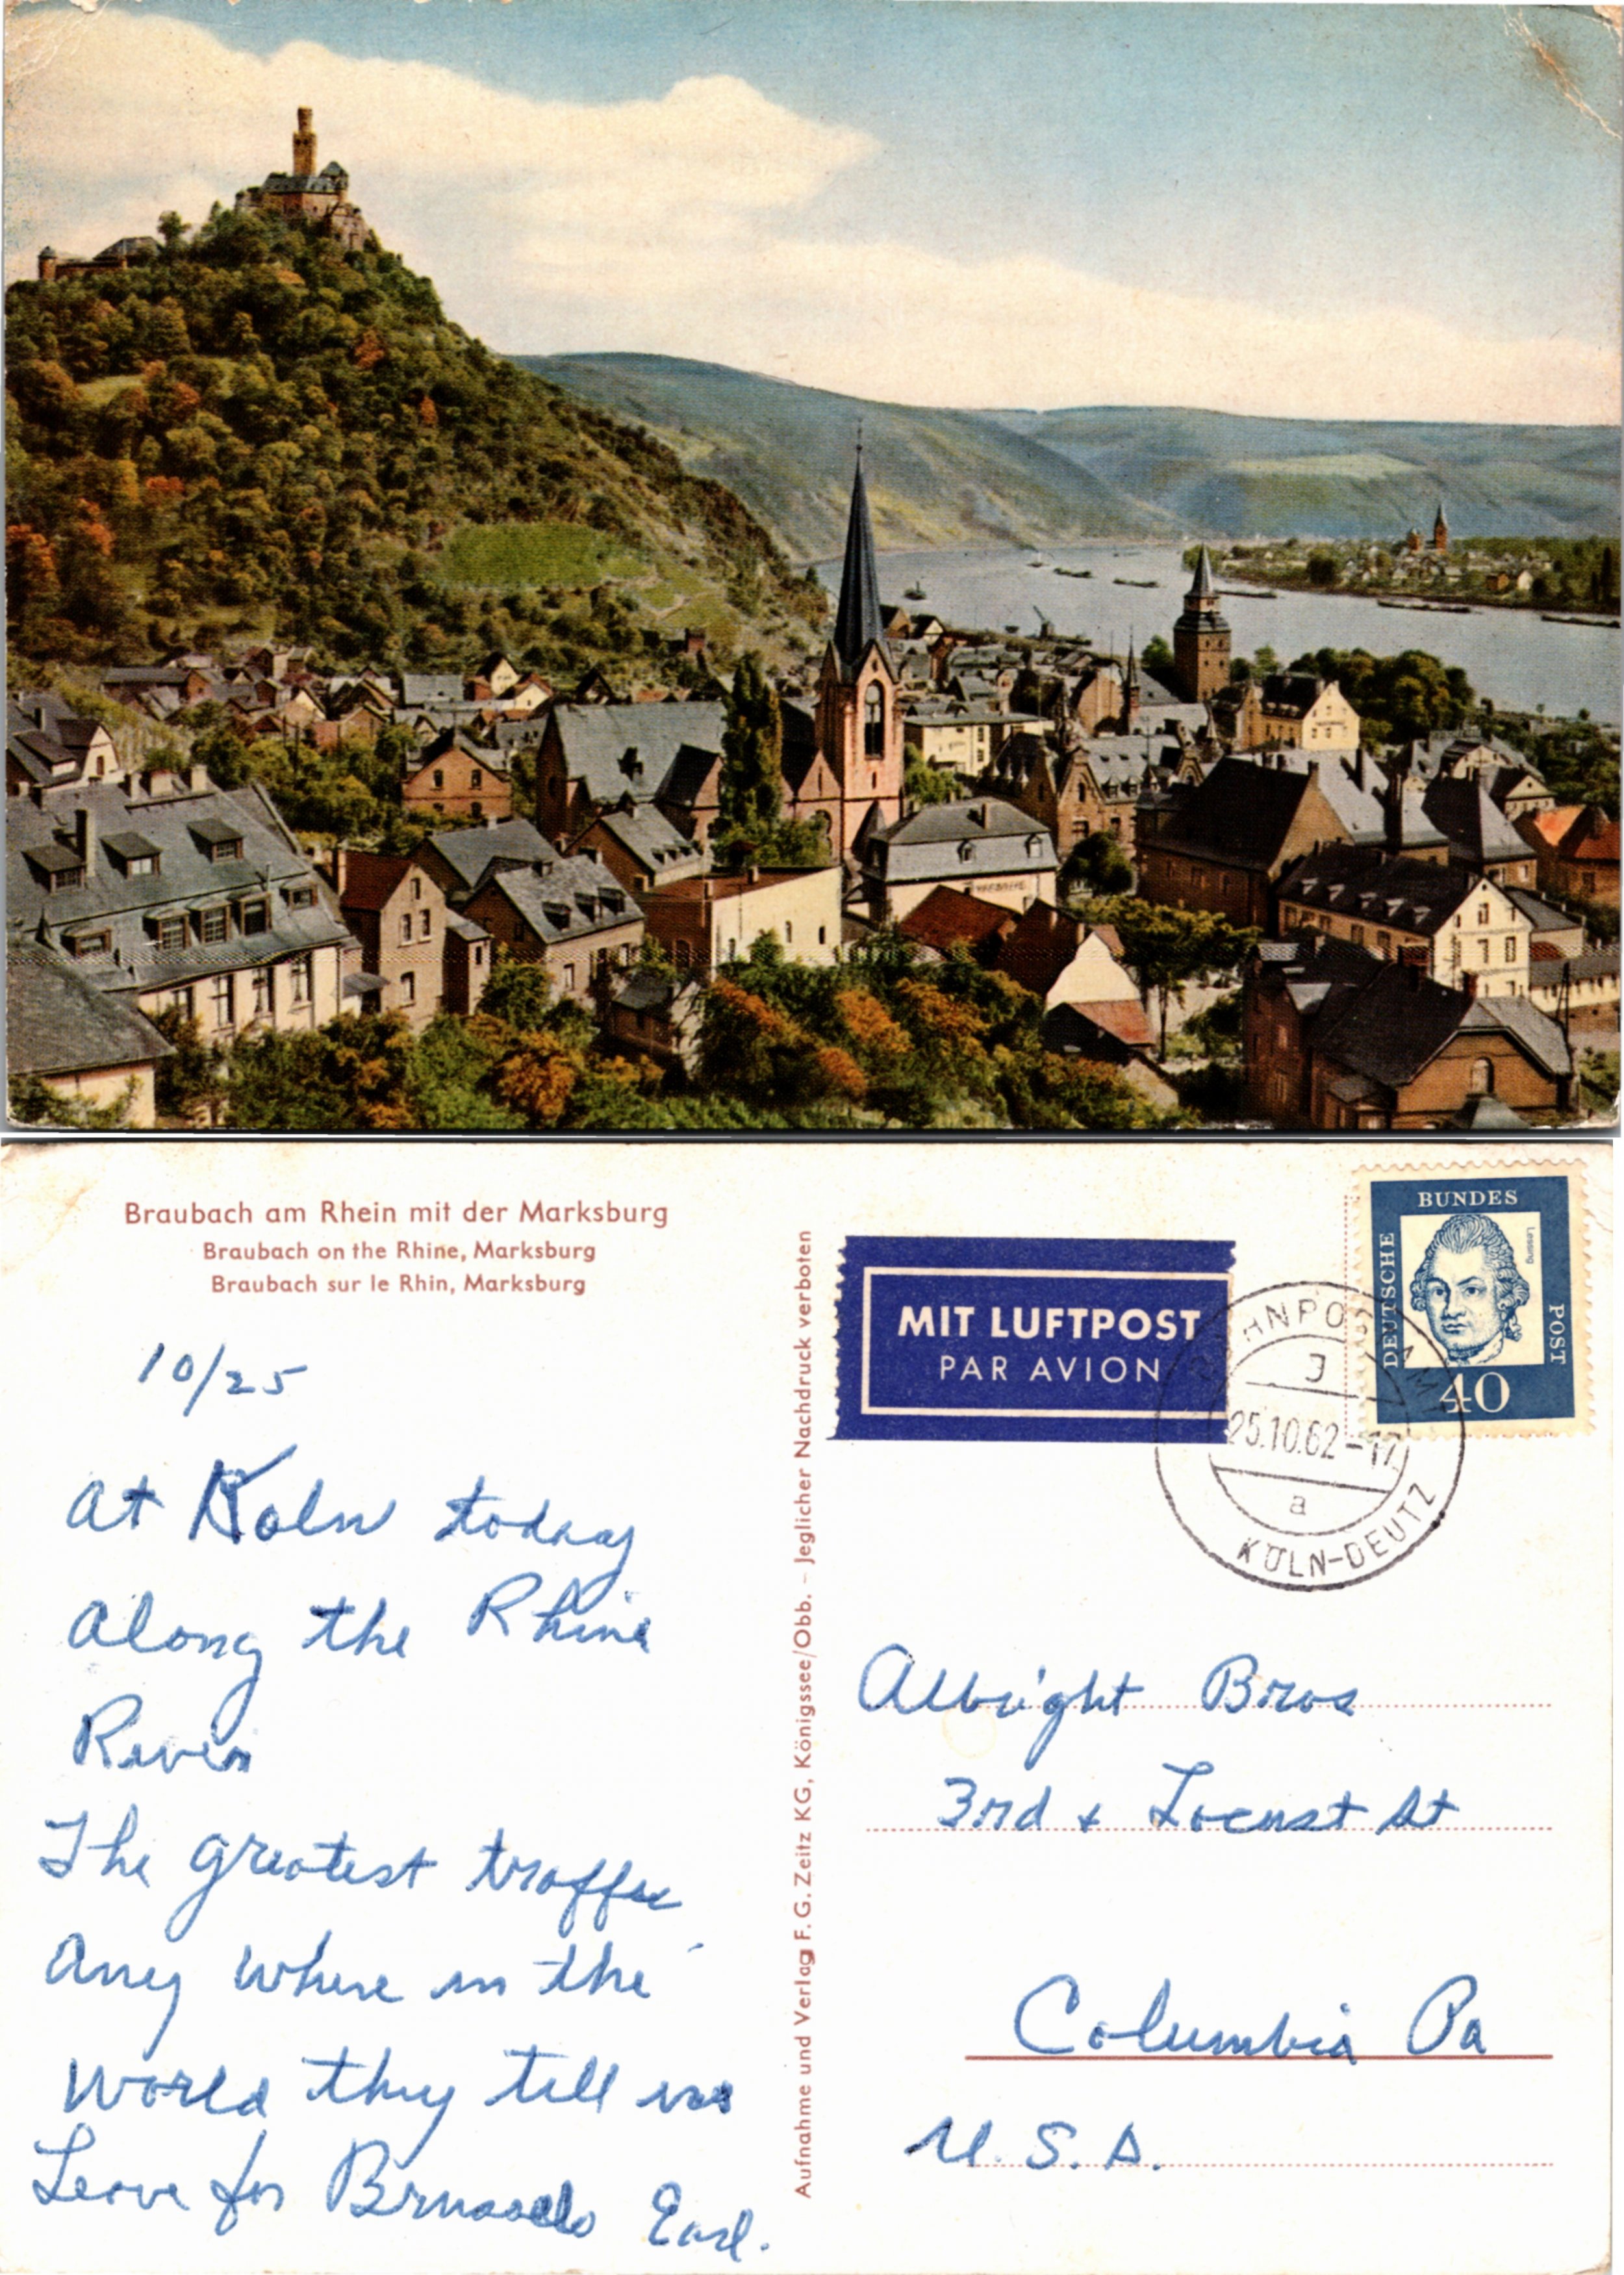 Braubach am Rhein mit der Marksburg
Braubach on the Rhine, Marksburg
Braubach sur le Rhin, Marksburg
10/25
At Koln today
along the Rhine
River
The greatest traffic
any where in the
world they tell us
Leave for Brussels Earl.
Aufnahme und Verlag F. G. Zeitz KG, Königssee/Obb. – Jeglicher Nachdruck verboten
MIT LUFTPOST
PAR AVION
BUNDES
DEUTSCHE
POST
Lessing
40
BAHNPOSTAMT
J
25.10.62-17
a
KÖLN-DEUTZ
Albright Bros
3rd + Locust St
Columbia Pa
U.S.A.